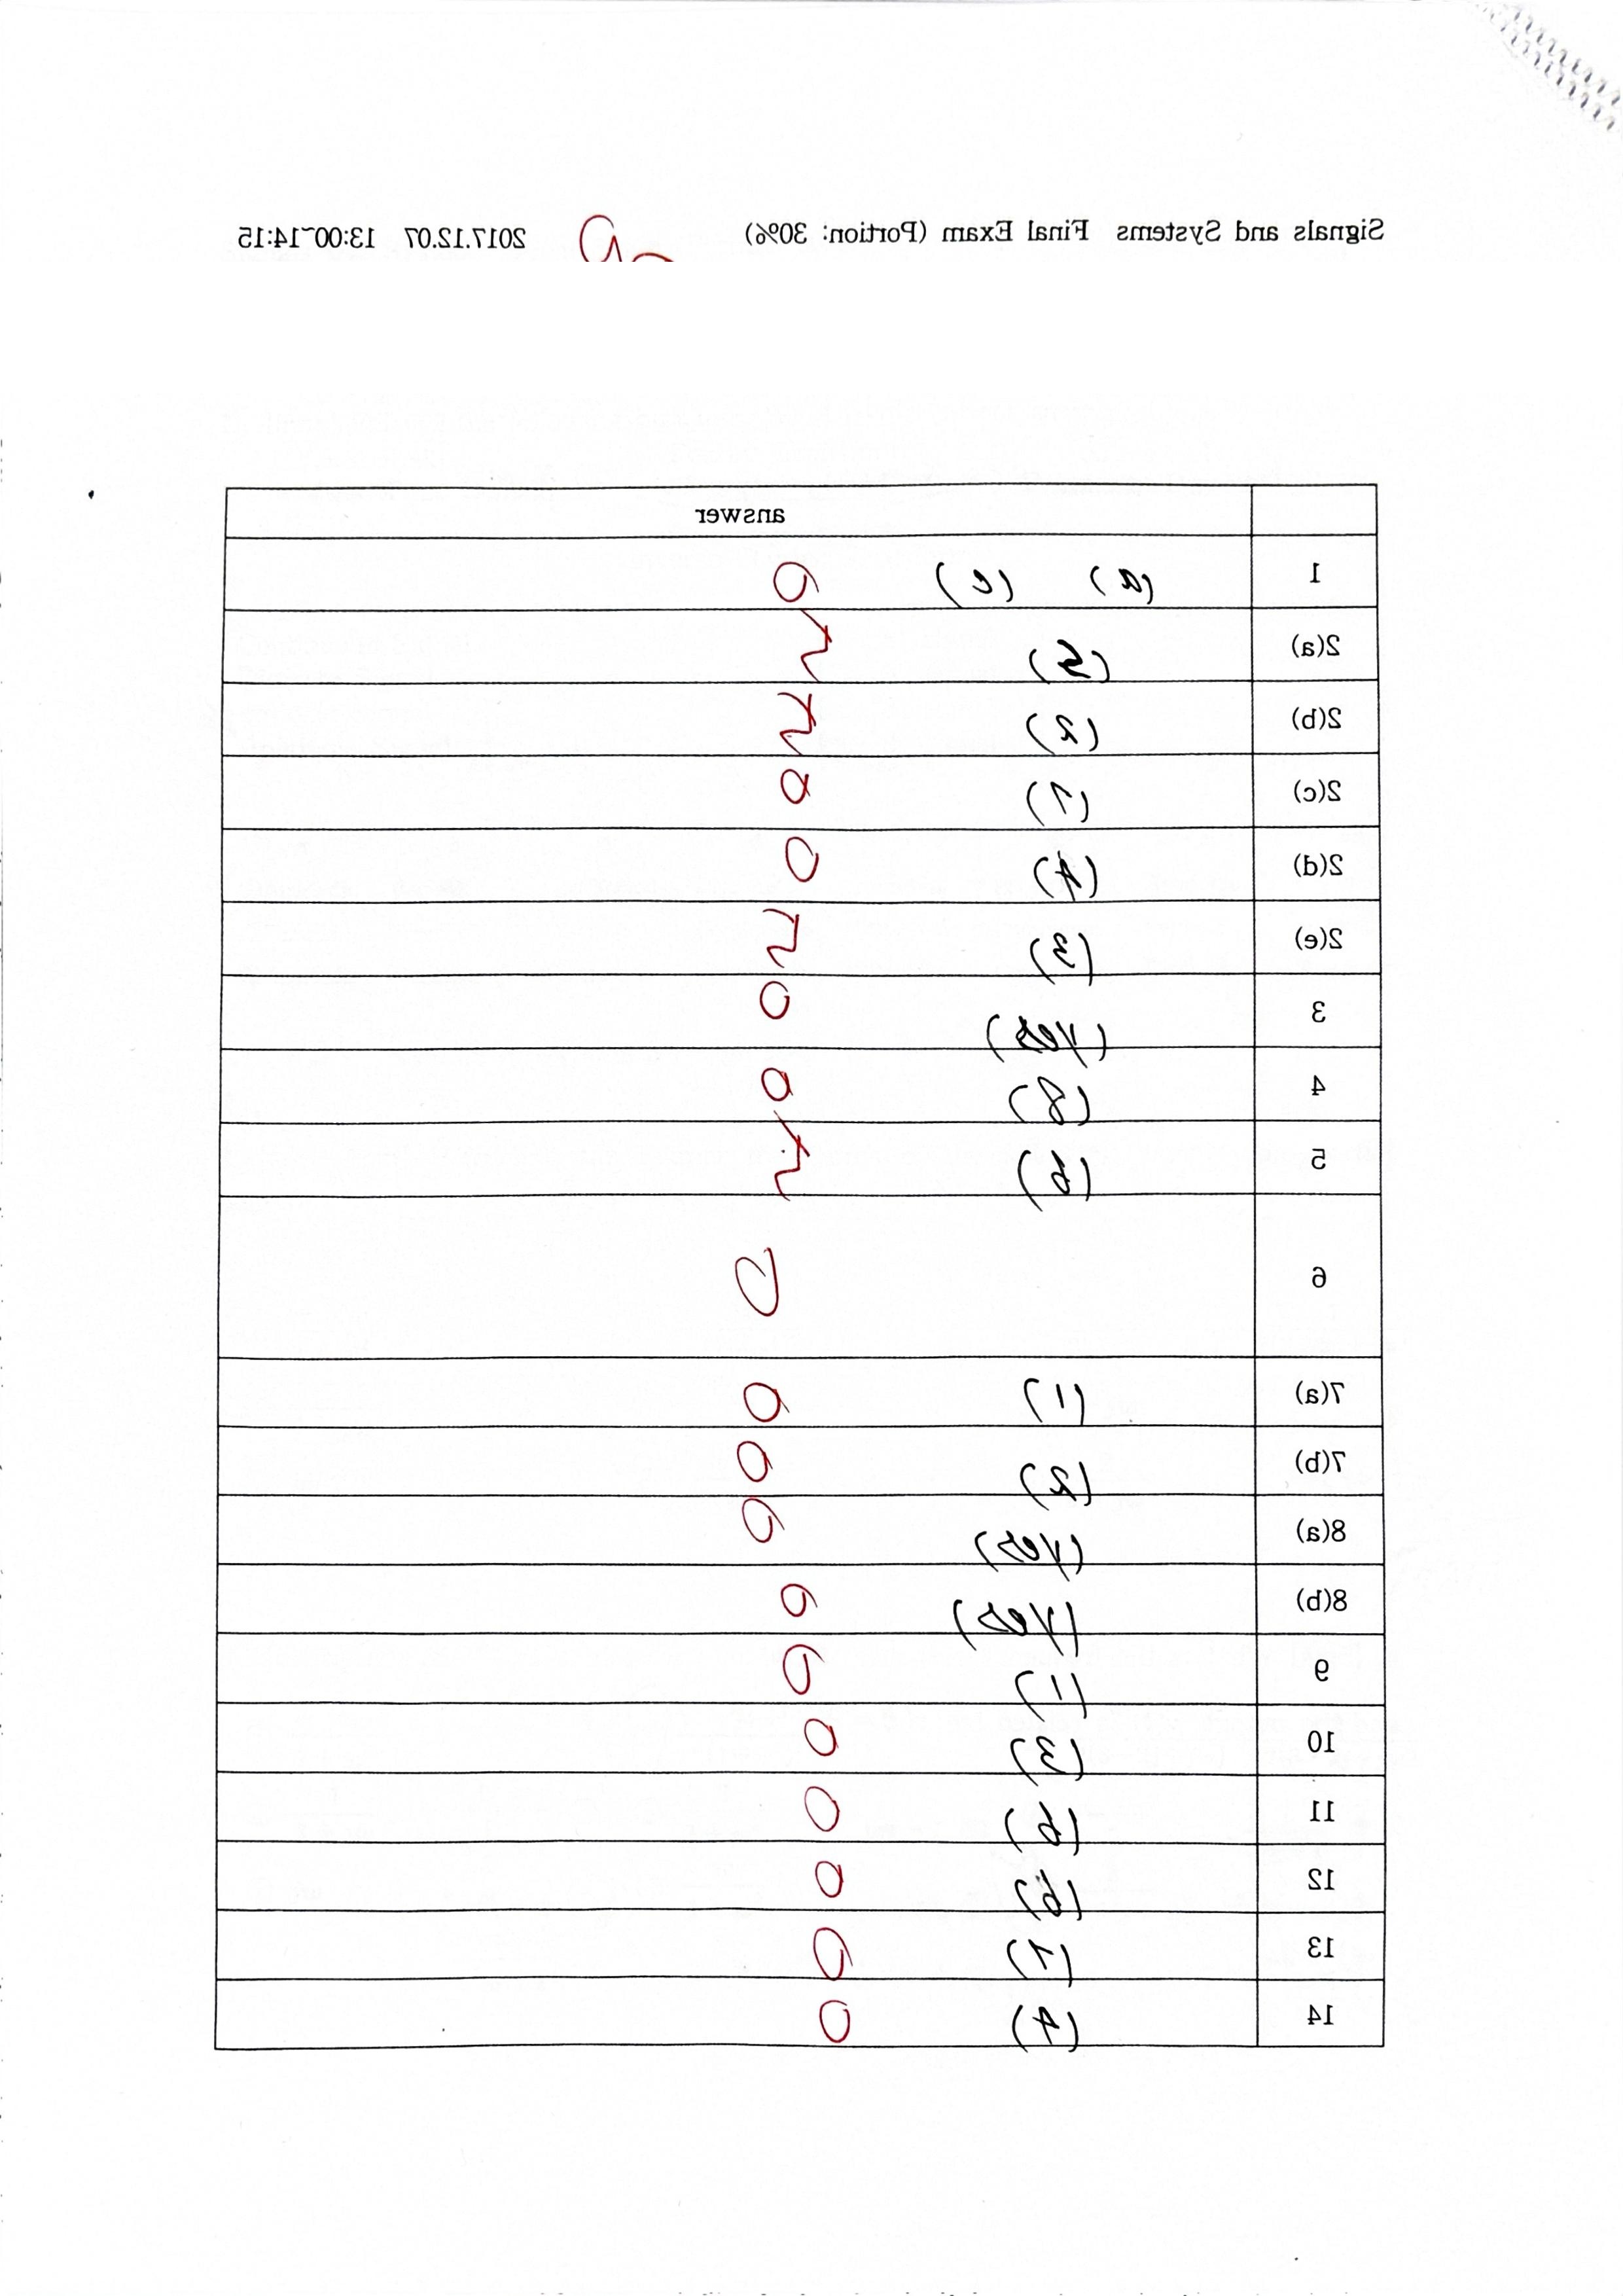 Signals and Systems Final Exam (Portion: 30%) 2017.12.07 13:00~14:15
answer
1 (a) (c)
2(a) (5)
2(b) (2)
2(c) (1)
2(d) (4)
2(e) (3)
3 (yes)
4 (8)
5 (b)
6
7(a) (1)
7(b) (2)
8(a) (yes)
8(b) (yes)
9 (1)
10 (3)
11 (b)
12 (b)
13 (1)
14 (4)